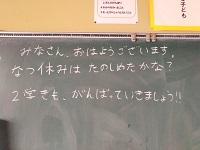 みなさん、おはようございます。
なつ休みは たのしめたかな?
2学きも、がんばっていきましょう!!
子ども